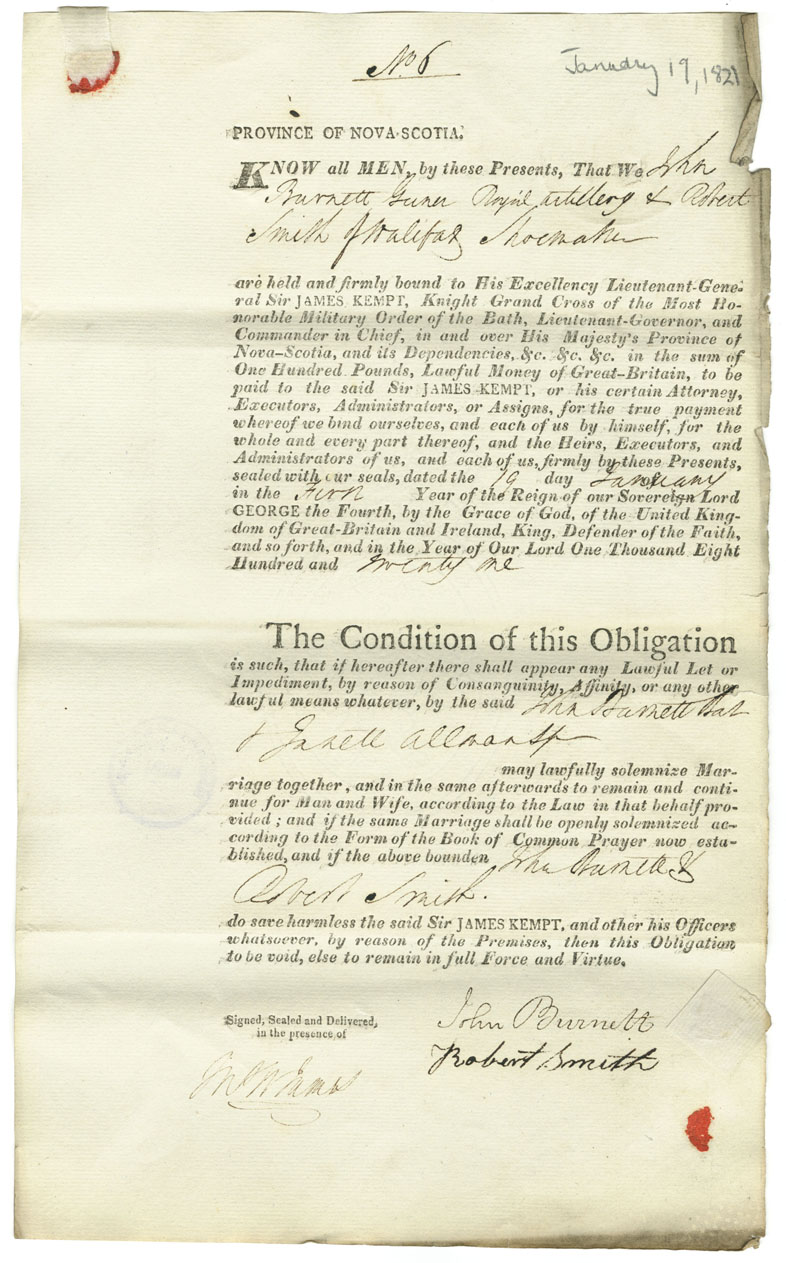 No 6
January 19, 1821
PROVINCE OF NOVA-SCOTIA.
KNOW all MEN, by these Presents, That We John
Burnett Guner Royal artillery & Robert
Smith of Halifax Shoemaker
are held and firmly bound to His Excellency Lieutenant-Gene-
ral Sir JAMES KEMPT, Knight Grand Cross of the Most Ho-
norable Military Order of the Bath, Lieutenant-Governor, and
Commander in Chief, in and over His Majesty's Province of
Nova-Scotia, and its Dependencies, &c. &c. &c. in the sum of
One Hundred Pounds, Lawful Money of Great-Britain, to be
paid to the said Sir JAMES KEMPT, or his certain Attorney,
Executors, Administrators, or Assigns, for the true payment
whereof we bind ourselves, and each of us by himself, for the
whole and every part thereof, and the Heirs, Executors, and
Administrators of us, and each of us, firmly by these Presents,
sealed with our seals, dated the 19 day January
in the First Year of the Reign of our Sovereign Lord
GEORGE the Fourth, by the Grace of God, of the United King-
dom of Great-Britain and Ireland, King, Defender of the Faith,
and so forth, and in the Year of Our Lord One Thousand Eight
Hundred and twenty one
The Condition of this Obligation
is such, that if hereafter there shall appear any Lawful Let or
Impediment, by reason of Consanguinity, Affinity, or any other
lawful means whatever, by the said John Burnett Bat
& Janell
may lawfully solemnize Mar-
riage together, and in the same afterwards to remain and conti-
nue for Man and Wife, according to the Law in that behalf pro-
vided; and if the same Marriage shall be openly solemnized ac-
cording to the Form of the Book of Common Prayer now esta-
blished, and if the above bounden John Burnett &
Robert Smith.
do save harmless the said Sir JAMES KEMPT, and other his Officers
whatsoever, by reason of the Premises, then this Obligation
to be void, else to remain in full Force and Virtue.
Signed, Sealed and Delivered,
in the presence of
John Burnett
Robert Smith